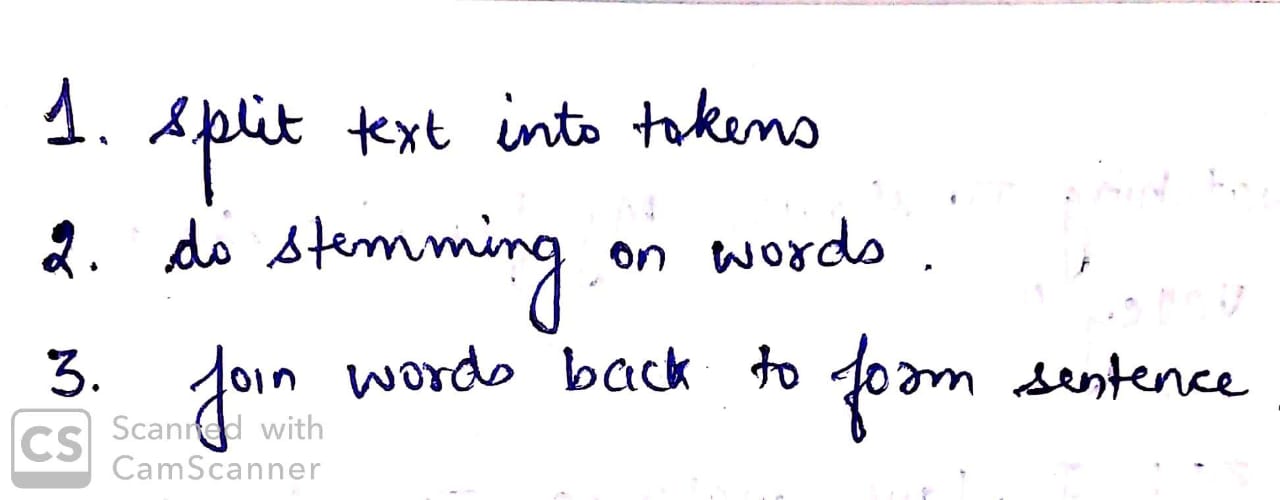 1. split text into tokens
2. do stemming on words.
3. Join words back to form sentence.
CS Scanned with
CamScanner